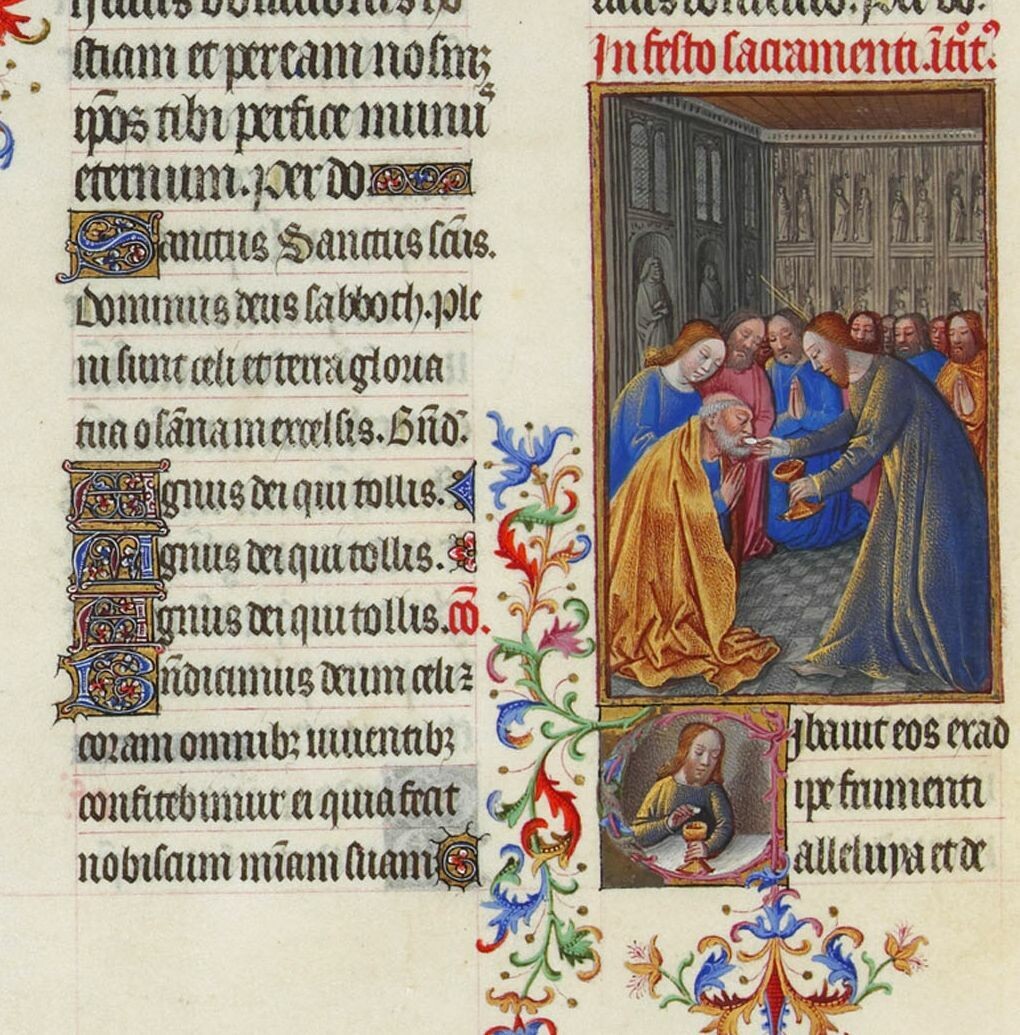 sticiam et pereamus nosmz
ipōs tibi perfice munuˢ
eternum. Per do
Sanctus Sanctus scūs.
Dominus deus sabboth. Ple
ni sunt celi et terra gloria
tua osāna in excelsis. Bñd.
Agnus dei qui tollis.
Agnus dei qui tollis.
Agnus dei qui tollis. cō.
Bñdicimus deum celi z
coram omnibz viventibz
confitebimur ei quia fecit
nobiscum mīam suam
In festo sacramenti. ītͦitꝰ
Cibavit eos ex ad
ipe frumenti
alleluya et de